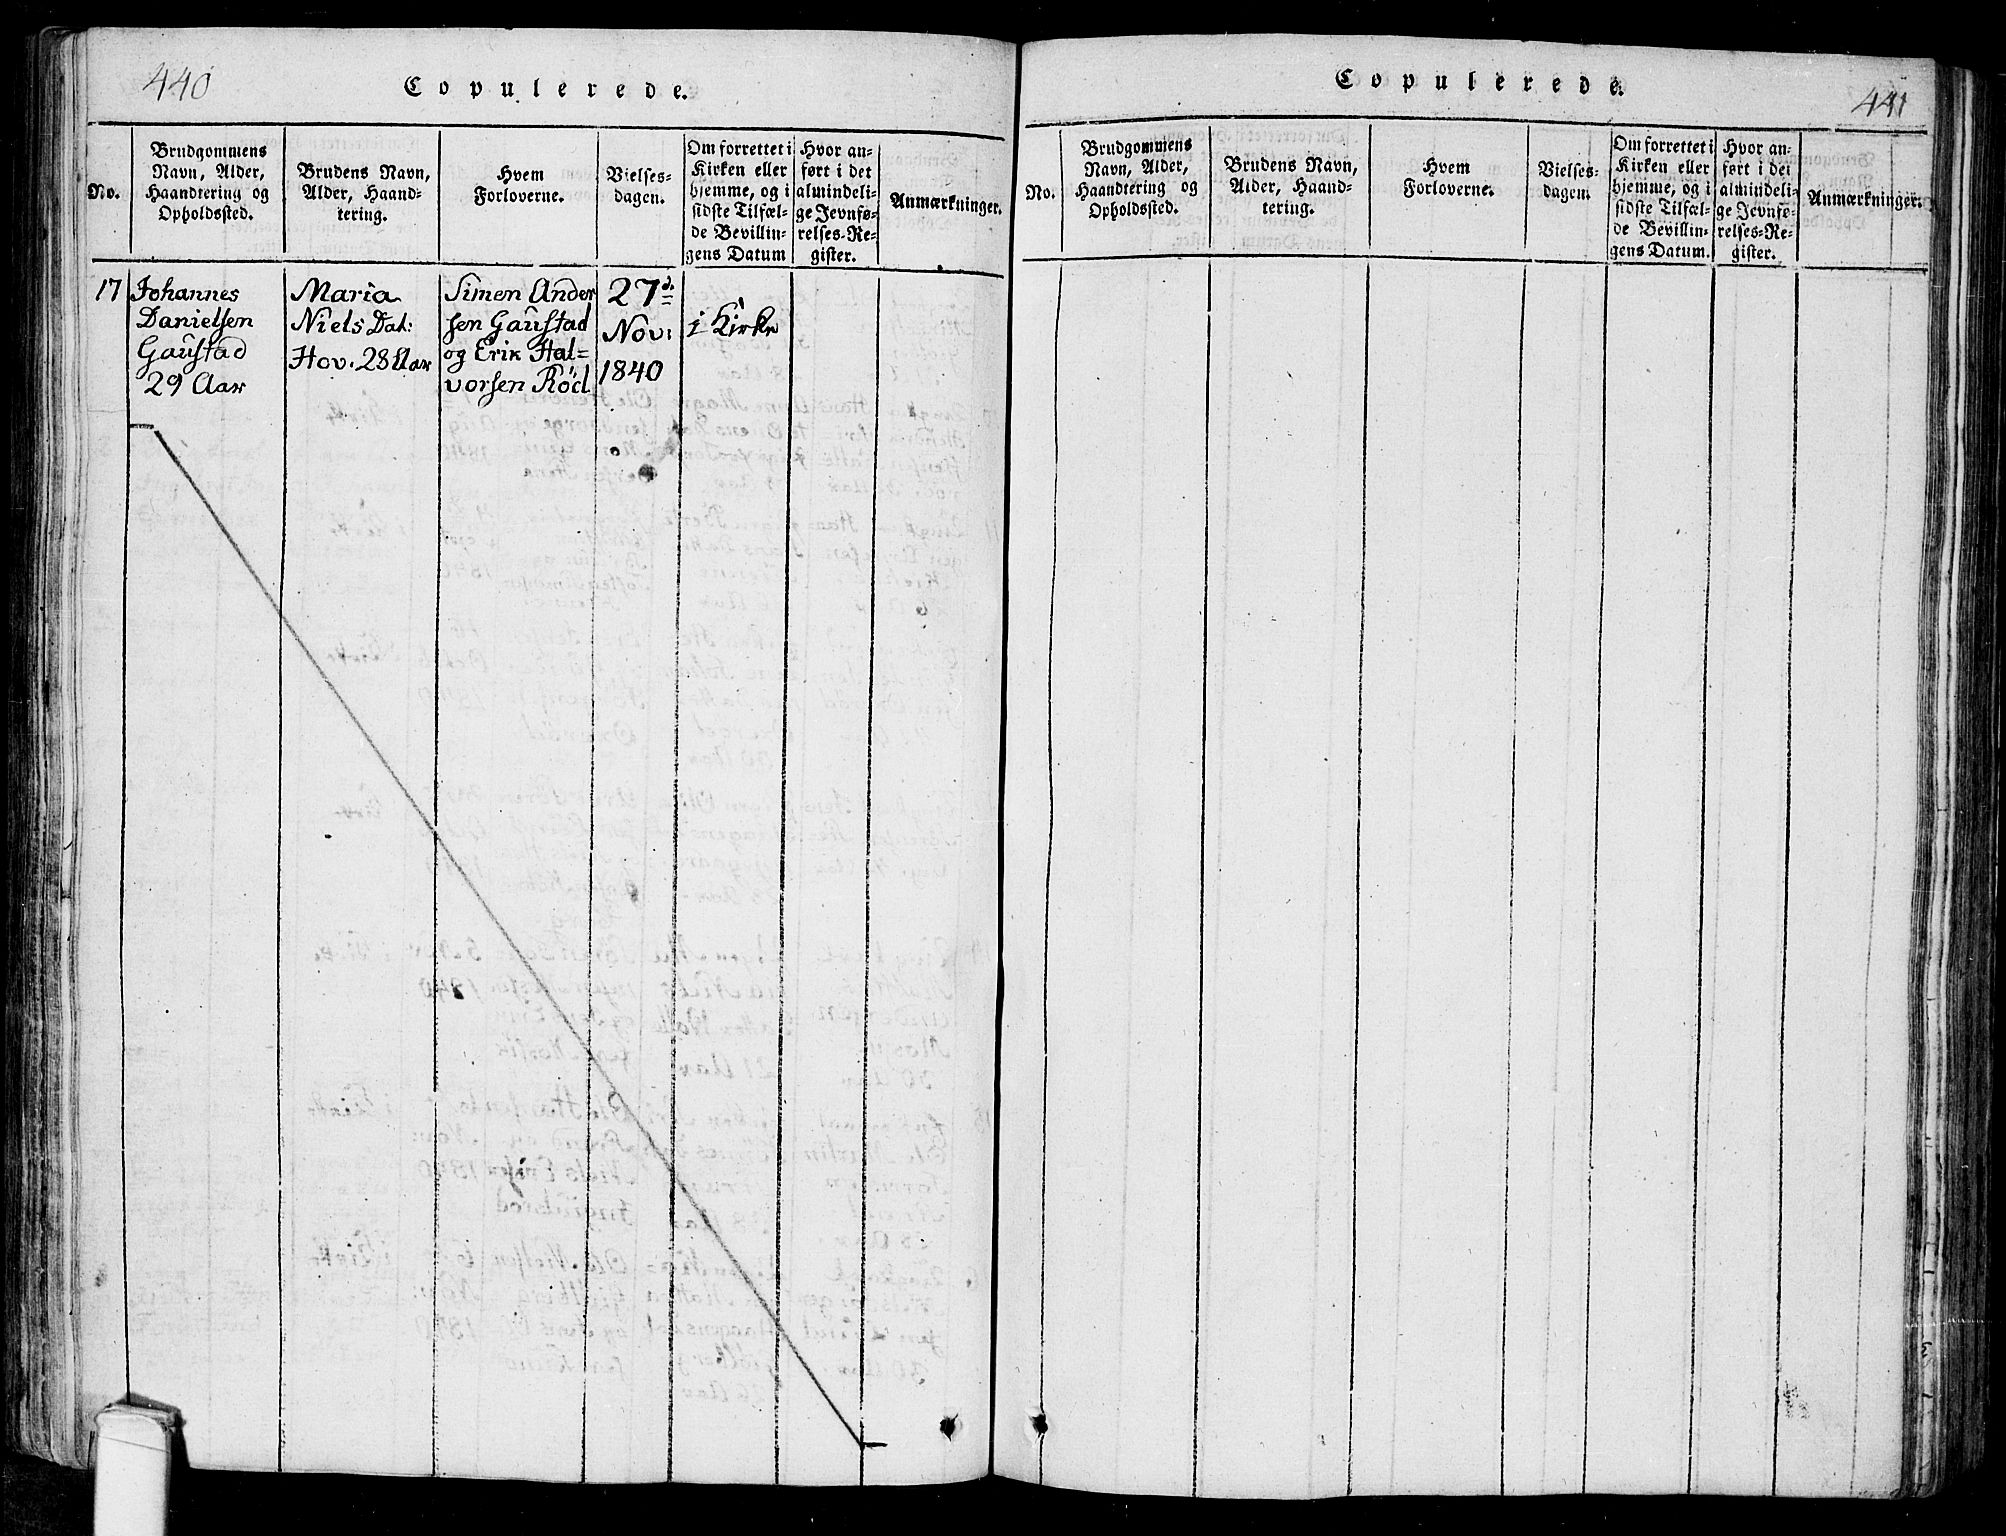 440
Copulerede.
No.
Brudgommens
Navn, Alder,
Haandtering og
Opholdssted.
Brudens Navn,
Alder, Haand-
tering.
Hvem
Forloverne.
Vielses-
dagen.
Om forrettet i
Kirken eller
hjemme, og i
sidste Tilfæl-
de Bevillin-
gens Datum
Hvor an-
ført i det
almindeli-
ge Jevnfø-
relses-Re-
gister.
Anmærkninger.
17
Johannes
Danielsen
Gaustad
29 Aar
Maria
Niels Dat:
Hov. 28 Aar
Simen Ander
sen Gaustad
og Erik Hal=
vorsen Röd
27d.
Nov:
1840
i Kirke
Copulerede.
441
No.
Brudgommens
Navn, Alder,
Haandtering og
Opholdssted.
Brudens Navn,
Alder, Haand-
tering.
Hvem
Forloverne.
Vielses-
dagen.
Om forrettet i
Kirken eller
hjemme, og i
sidste Tilfæl-
de Bevillin-
gens Datum.
Hvor an-
ført i det
almindeli-
ge Jevnfø-
relses-Re-
gister.
Anmærkninger.